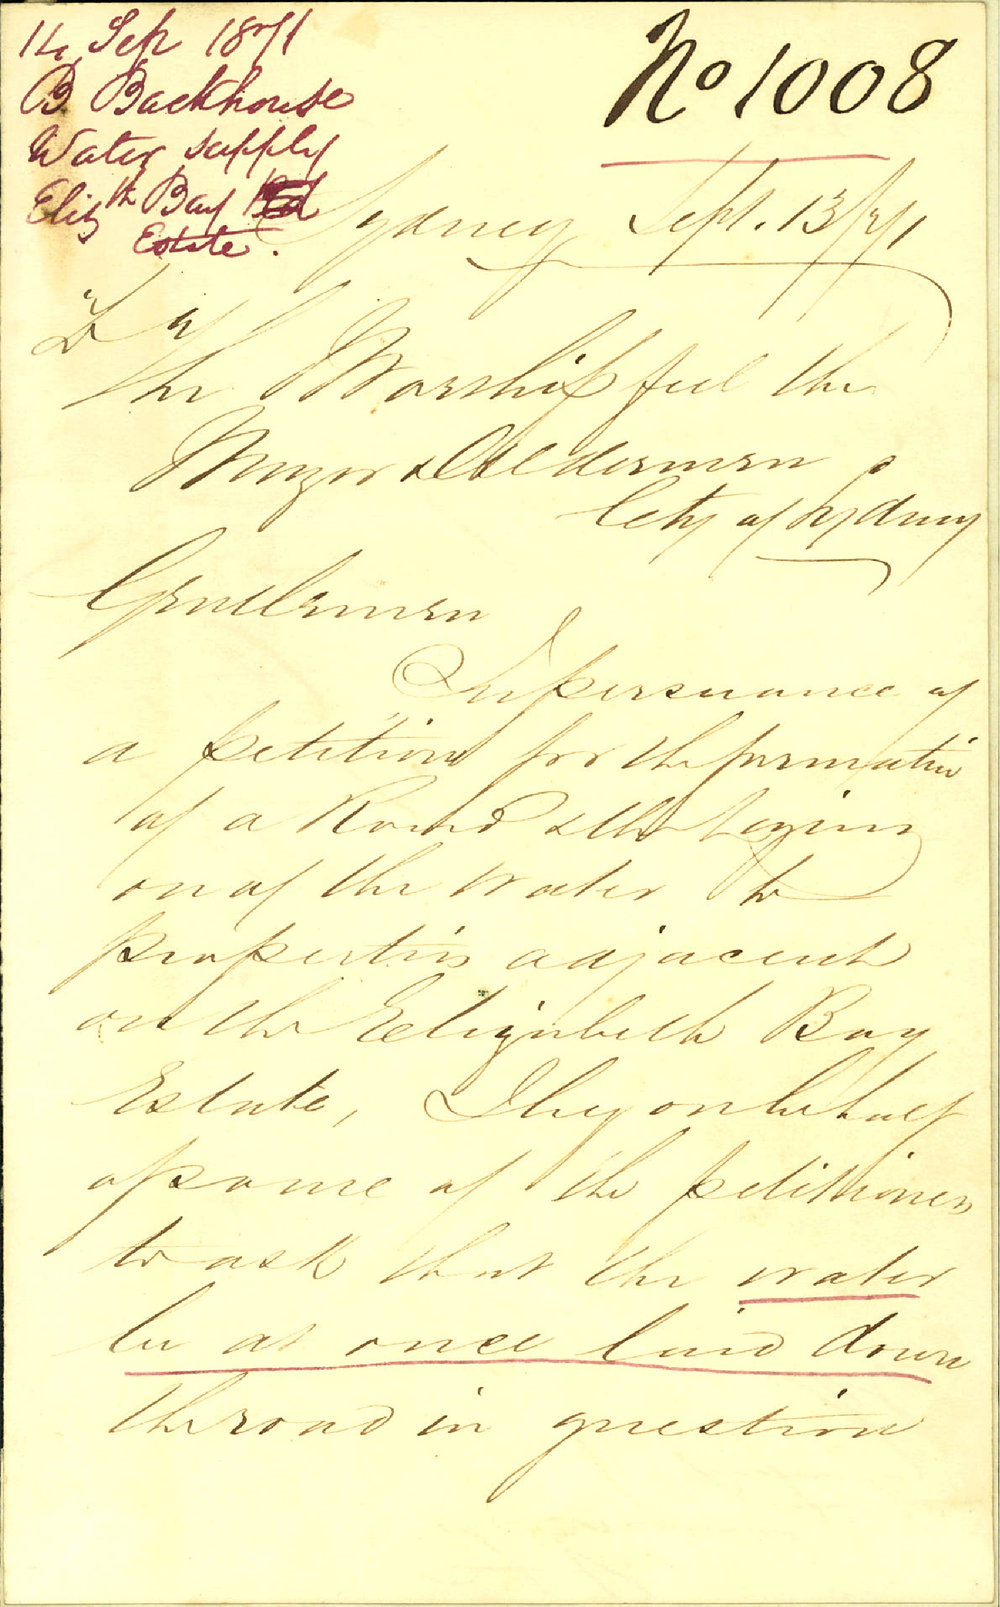 14 Sep 1871
B. Backhouse
Water supply
Elizth Bay Rd
Estate.
No 1008
Sydney Sept. 13/71
To
The Worshipful the
Mayor & Aldermen
City of Sydney
Gentlemen
In persuance of
a petition for the formation
of a Road & the laying
on of the water to
properties adjacent
on the Elizabeth Bay
Estate, I beg on behalf
of some of the petitioners
to ask that the water
be at once laid down
the road in question